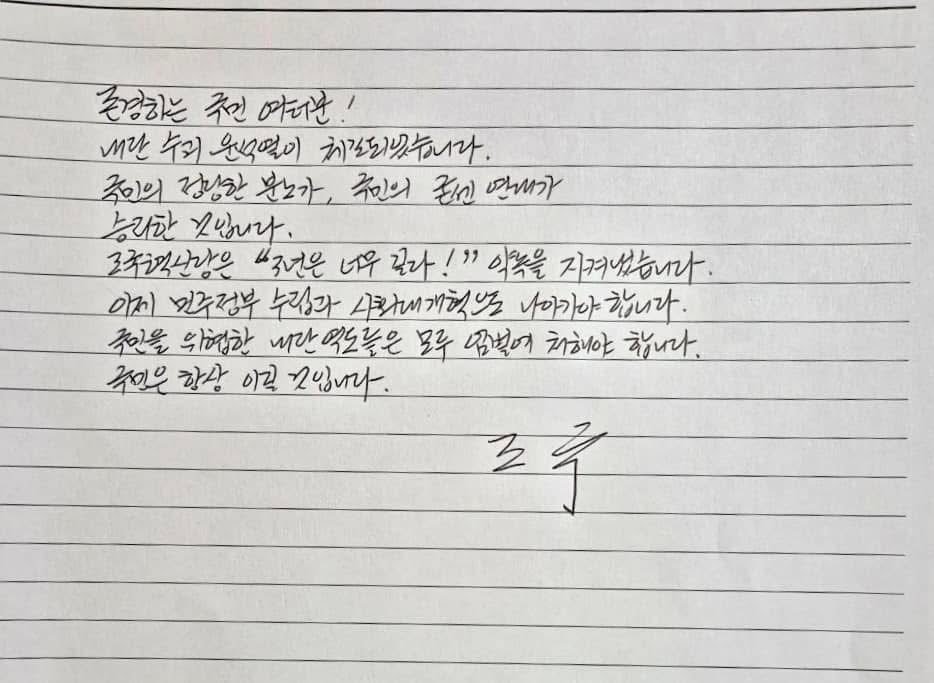 존경하는 국민 여러분!
내란 수괴 윤석열이 체포되었습니다.
국민의 정당한 분노가, 국민의 굳센 연대가
승리한 것입니다.
조국혁신당은 “3년은 너무 길다!” 약속을 지켜냈습니다.
이제 민주정부 수립과 사회대개혁으로 나아가야 합니다.
국민을 위협한 내란 역도들은 모두 엄벌에 처해야 합니다.
국민은 항상 이길 것입니다.
조국